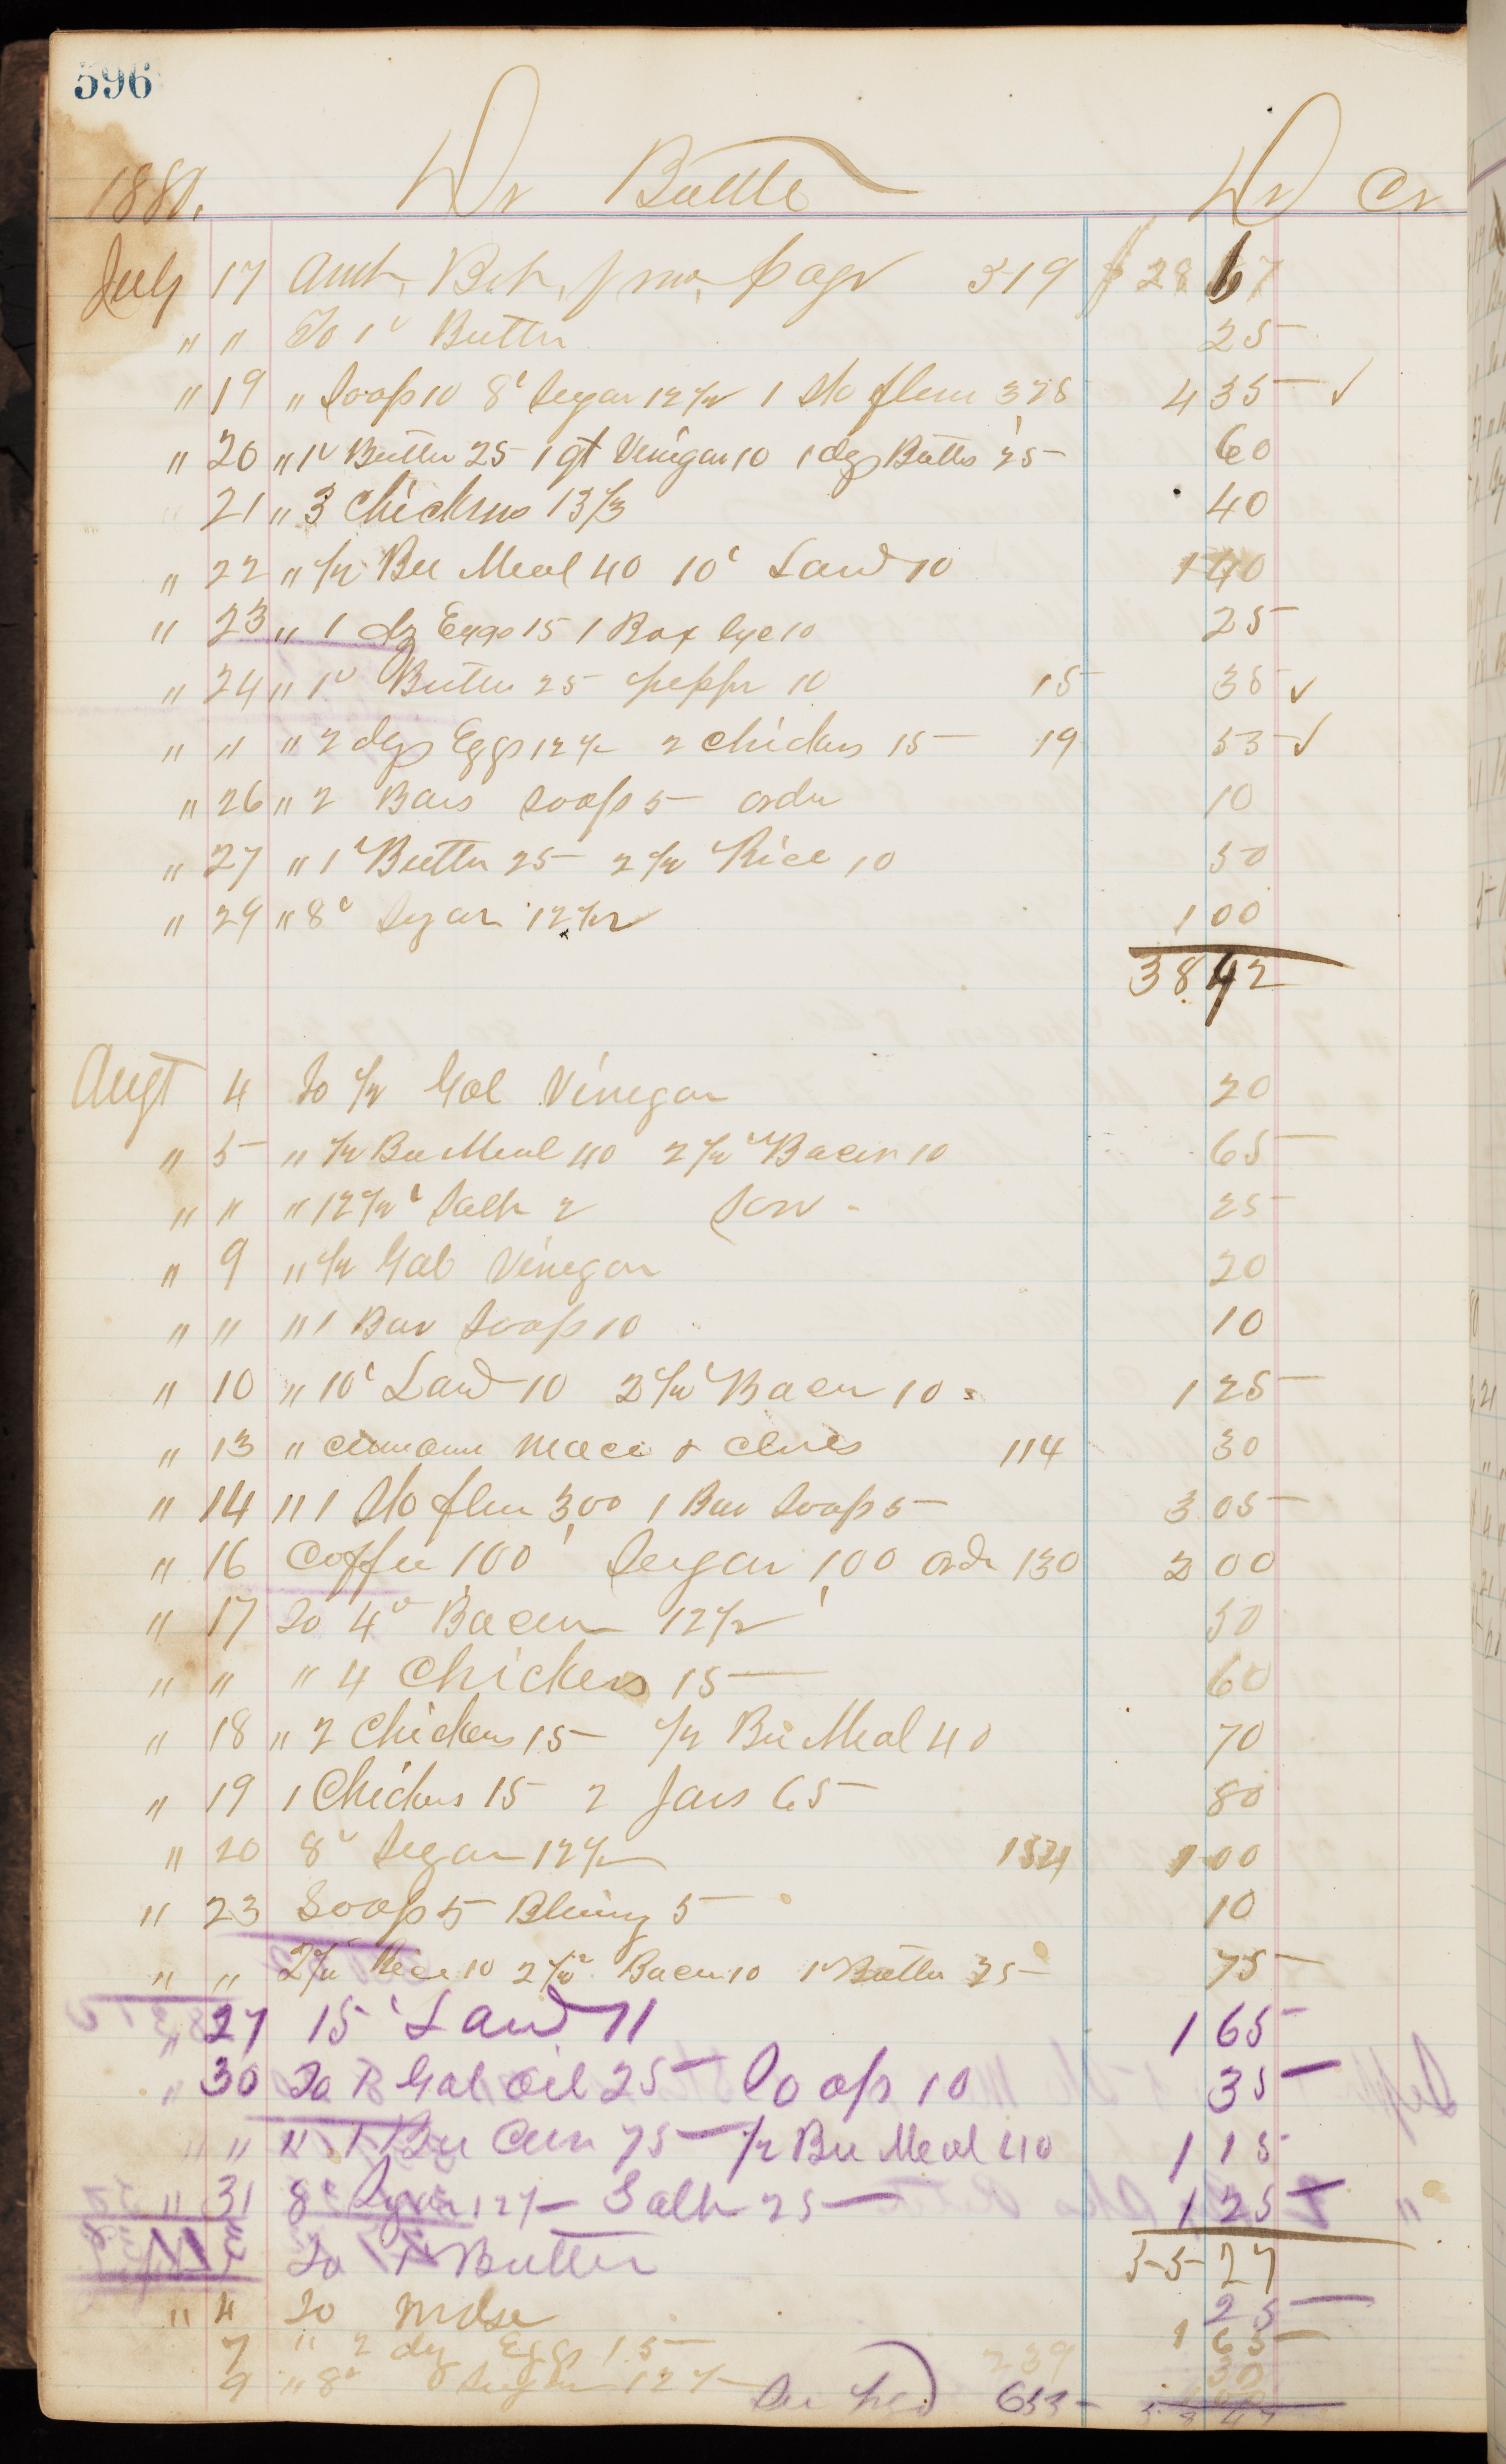 596
1880. Dr Battle Dr Cr
July 17 Amt, Bot, frm, page 319 $ 28 67
" " To 1 Butter 25
" 19 " Soap 10 8 Sugar 12½ 1 Sk flour 3,25 4 35 ✓
" 20 " 1 Butter 25 1 qt Vinegar 10 1 dz Butts 25 60
21 " 3 Chickens 13⅓ 40
" 22 " ½ Bu Meal 40 10 Lard 10 1 40
" 23 " 1 dz Eggs 15 1 Box Lye 10 25
" 24 " 1 Butter 25 peppr 10 15 35 ✓
" " " 2 dzs Eggs 12½ 2 Chickens 15 19 55 ✓
" 26 " 2 Bars Soap 5 order 10
" 27 " 1 Butter 25 2½ Rice 10 50
" 29 " 8 Sugar 12½ 1 00
38 42
Augt 4 To ½ Gal Vinegar 20
" 5 " ½ Bu Meal 40 2½ Bacon 10 65
" " " 12½ Salt 2 25
" 9 " ½ Gal Vinegar 20
" " " 1 Bar Soap 10 10
" 10 " 10 Lard 10 2½ Bacon 10 1 25
" 13 " Cinnamn Mace & Cloves 114 30
" 14 " 1 Sk flour 3,00 1 Bar Soap 5 3 05
" 16 Coffee 1,00 Sugar 1,00 ordr 130 2 00
" 17 To 4 Bacon 12½ 50
" " " 4 Chickens 15 60
" 18 " 2 Chickens 15 ½ Bu Meal 40 70
" 19 1 Chickens 15 2 Jars 65 80
" 20 8 Sugar 12½ 1 00
" 23 Soap 5 Bluing 5 10
" " 2½ Rice 10 2½ Bacon 10 1 Butter 25 75
" 27 15 Lard 11 1 65
" 30 To 1 Gal Oil 25 Soap 10 35
" " " 1 Bu Corn 75 ½ Bu Meal 40 1 15
" 31 8 Sugar 12½ Salt 25 1 25
55 27
To 1 Butter 25
" 4 To Mdse 1 65
7 " 2 dz Eggs 15 239 30
9 " 8 Sugar 12½
653